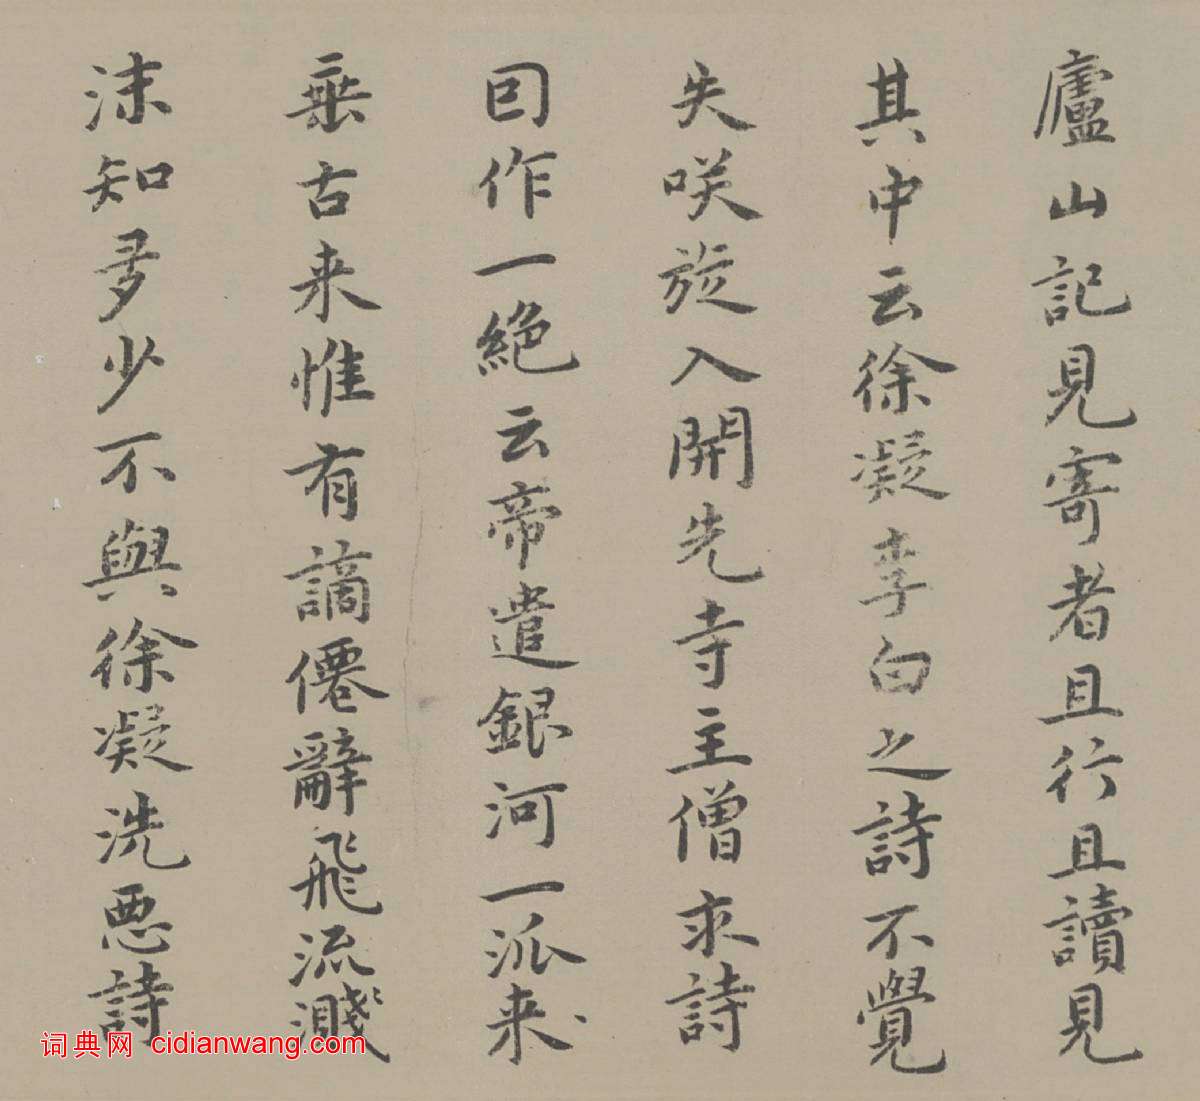 廬山記見寄者且行且讀見
其中云徐凝李白之詩不覺
失咲旋入開先寺主僧求詩
囙作一絕云帝遣銀河一派来
垂古来惟有謫僊辭飛流濺
沫知多少不與徐凝洗惡詩
词典网 cidianwang.com